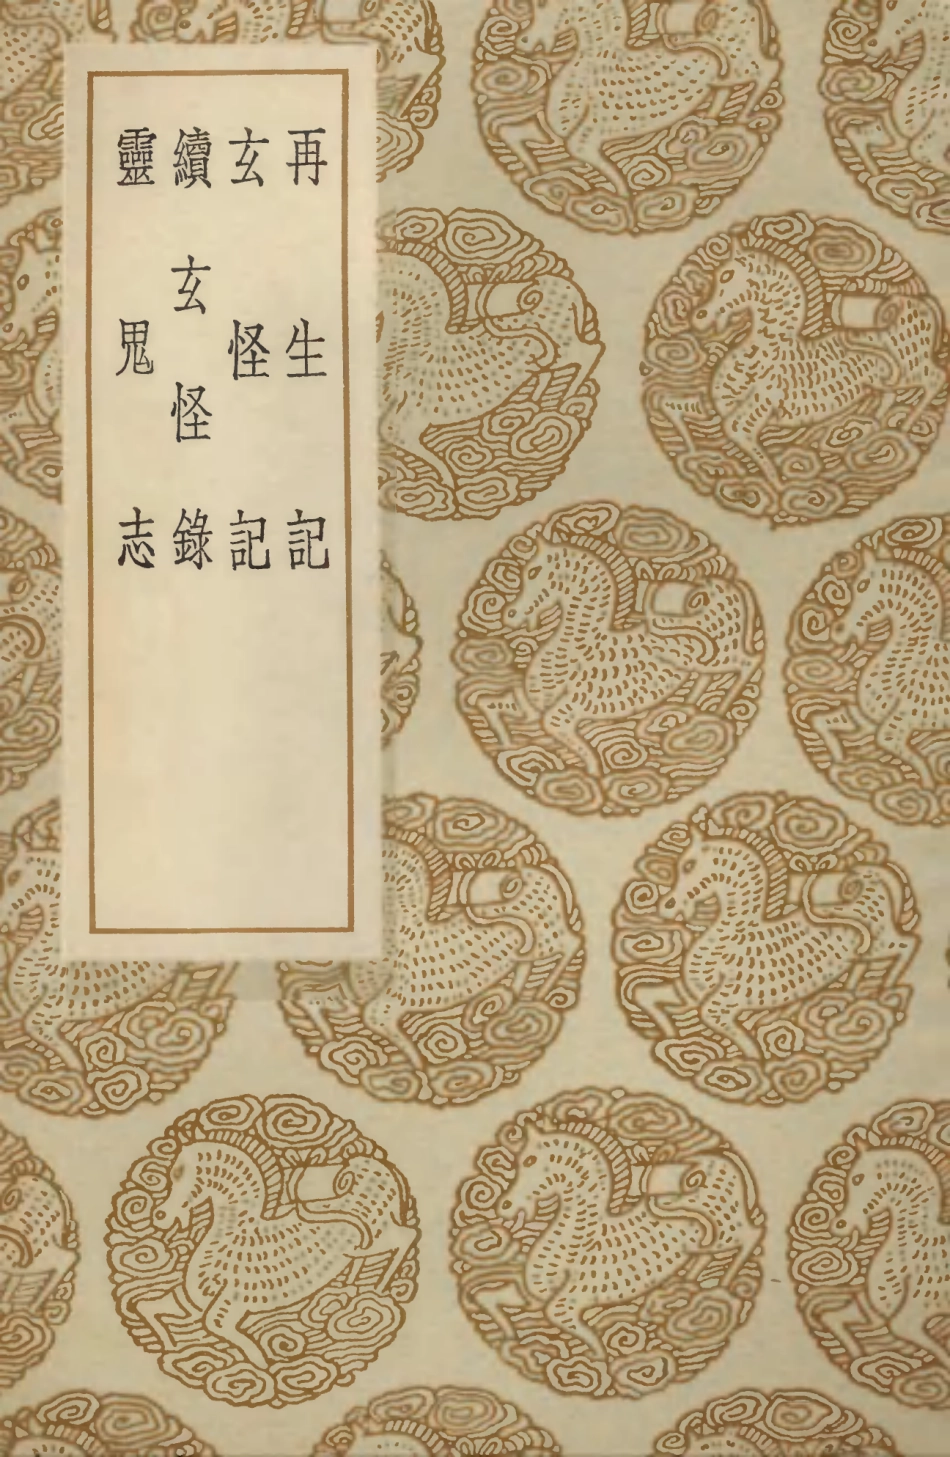 再生記
玄怪記
續玄怪錄
靈鬼志